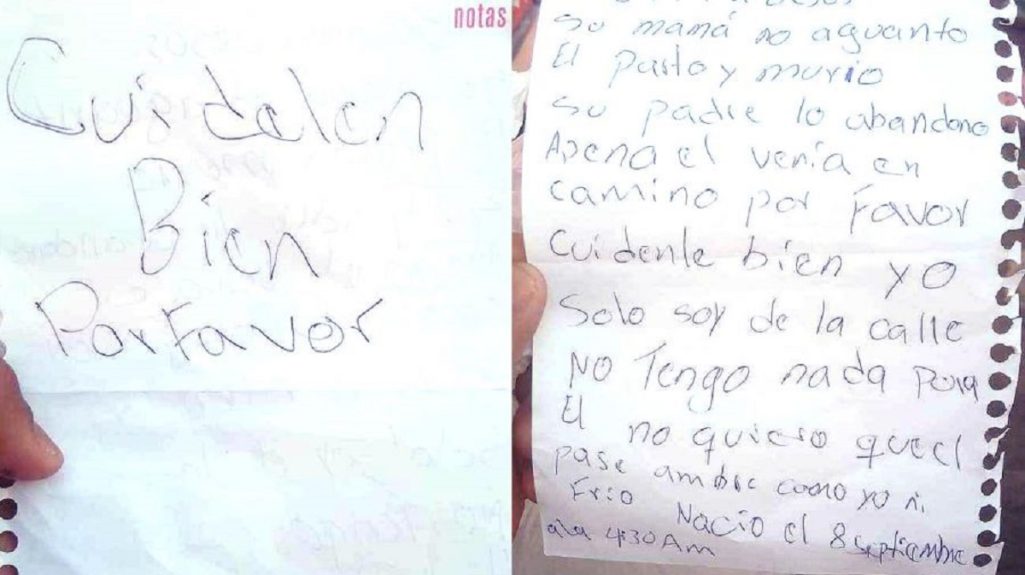 notas
Cuidelen
Bien
Por Favor
su mamá no aguanto
El Parto y murio
su padre lo abandono
Apena el venía en
camino por Favor
Cuidenle bien yo
Solo soy de la calle
No Tengo nada para
El no quiero que el
pase ambre como yo ni
Frio Nacio el 8 septiembre
a la 4:30 Am